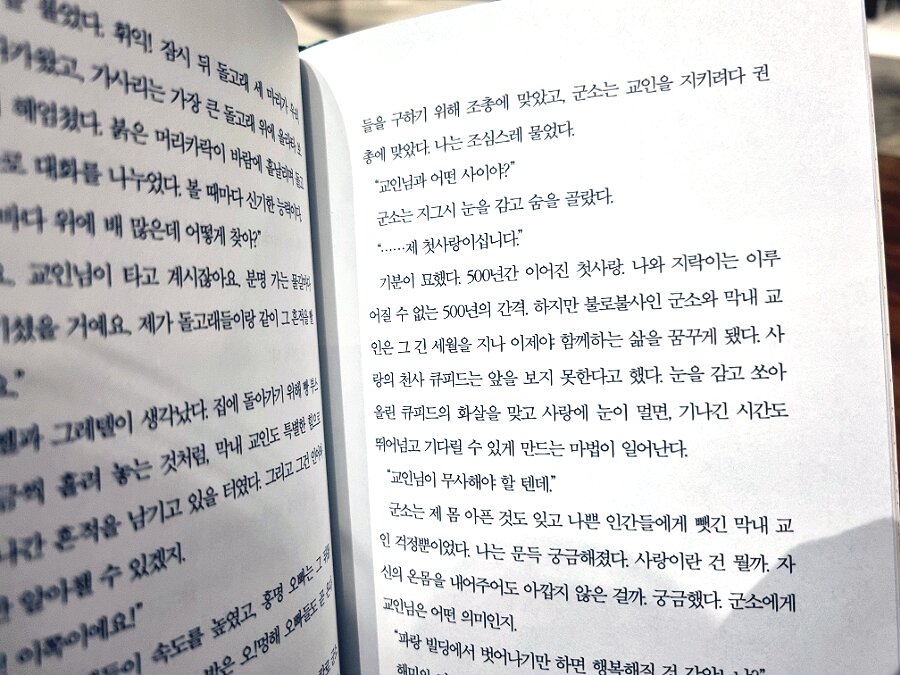 을 붙었다. 휘익! 잠시 뒤 돌고래 세 마리가 우리
가왔고, 가사리는 가장 큰 돌고래 위에 올라타
헤엄쳤다. 붉은 머리카락이 바람에 흩날리며 돌고
로 대화를 나누었다. 볼 때마다 신기한 능력이다.
바다 위에 배 많은데 어떻게 찾아?”
요. 교인님이 타고 계시잖아요. 분명 가는
기셨을 거예요. 제가 돌고래들이랑 같이 그 흔적을
요.”
과 그레텔이 생각났다. 집에 돌아가기 위해 빵
금씩 흘려 놓는 것처럼, 막내 교인도 특별한 힘으로
나간 흔적을 남기고 있을 터였다. 그리고 그건
알아챌 수 있겠지.
이쪽이에요!”
들이 속도를 높였고, 홍명 오빠는 그
은 오!명해 오빠들도 곧
들을 구하기 위해 조총에 맞았고, 군소는 교인을 지키려다 권
총에 맞았다. 나는 조심스레 물었다.
“교인님과 어떤 사이야?”
군소는 지그시 눈을 감고 숨을 골랐다.
“……제 첫사랑이십니다.”
기분이 묘했다. 500년간 이어진 첫사랑. 나와 지락이는 이루
어질 수 없는 500년의 간격. 하지만 불로불사인 군소와 막내 교
인은 그 긴 세월을 지나 이제야 함께하는 삶을 꿈꾸게 됐다. 사
랑의 천사 큐피드는 앞을 보지 못한다고 했다. 눈을 감고 쏘아
올린 큐피드의 화살을 맞고 사랑에 눈이 멀면, 기나긴 시간도
뛰어넘고 기다릴 수 있게 만드는 마법이 일어난다.
“교인님이 무사해야 할 텐데.”
군소는 제 몸 아픈 것도 잊고 나쁜 인간들에게 뺏긴 막내 교
인 걱정뿐이었다. 나는 문득 궁금해졌다. 사랑이란 건 뭘까. 자
신의 온몸을 내어주어도 아깝지 않은 걸까. 궁금했다. 군소에게
교인님은 어떤 의미인지.
“파랑 빌딩에서 벗어나기만 하면 행복해질 것